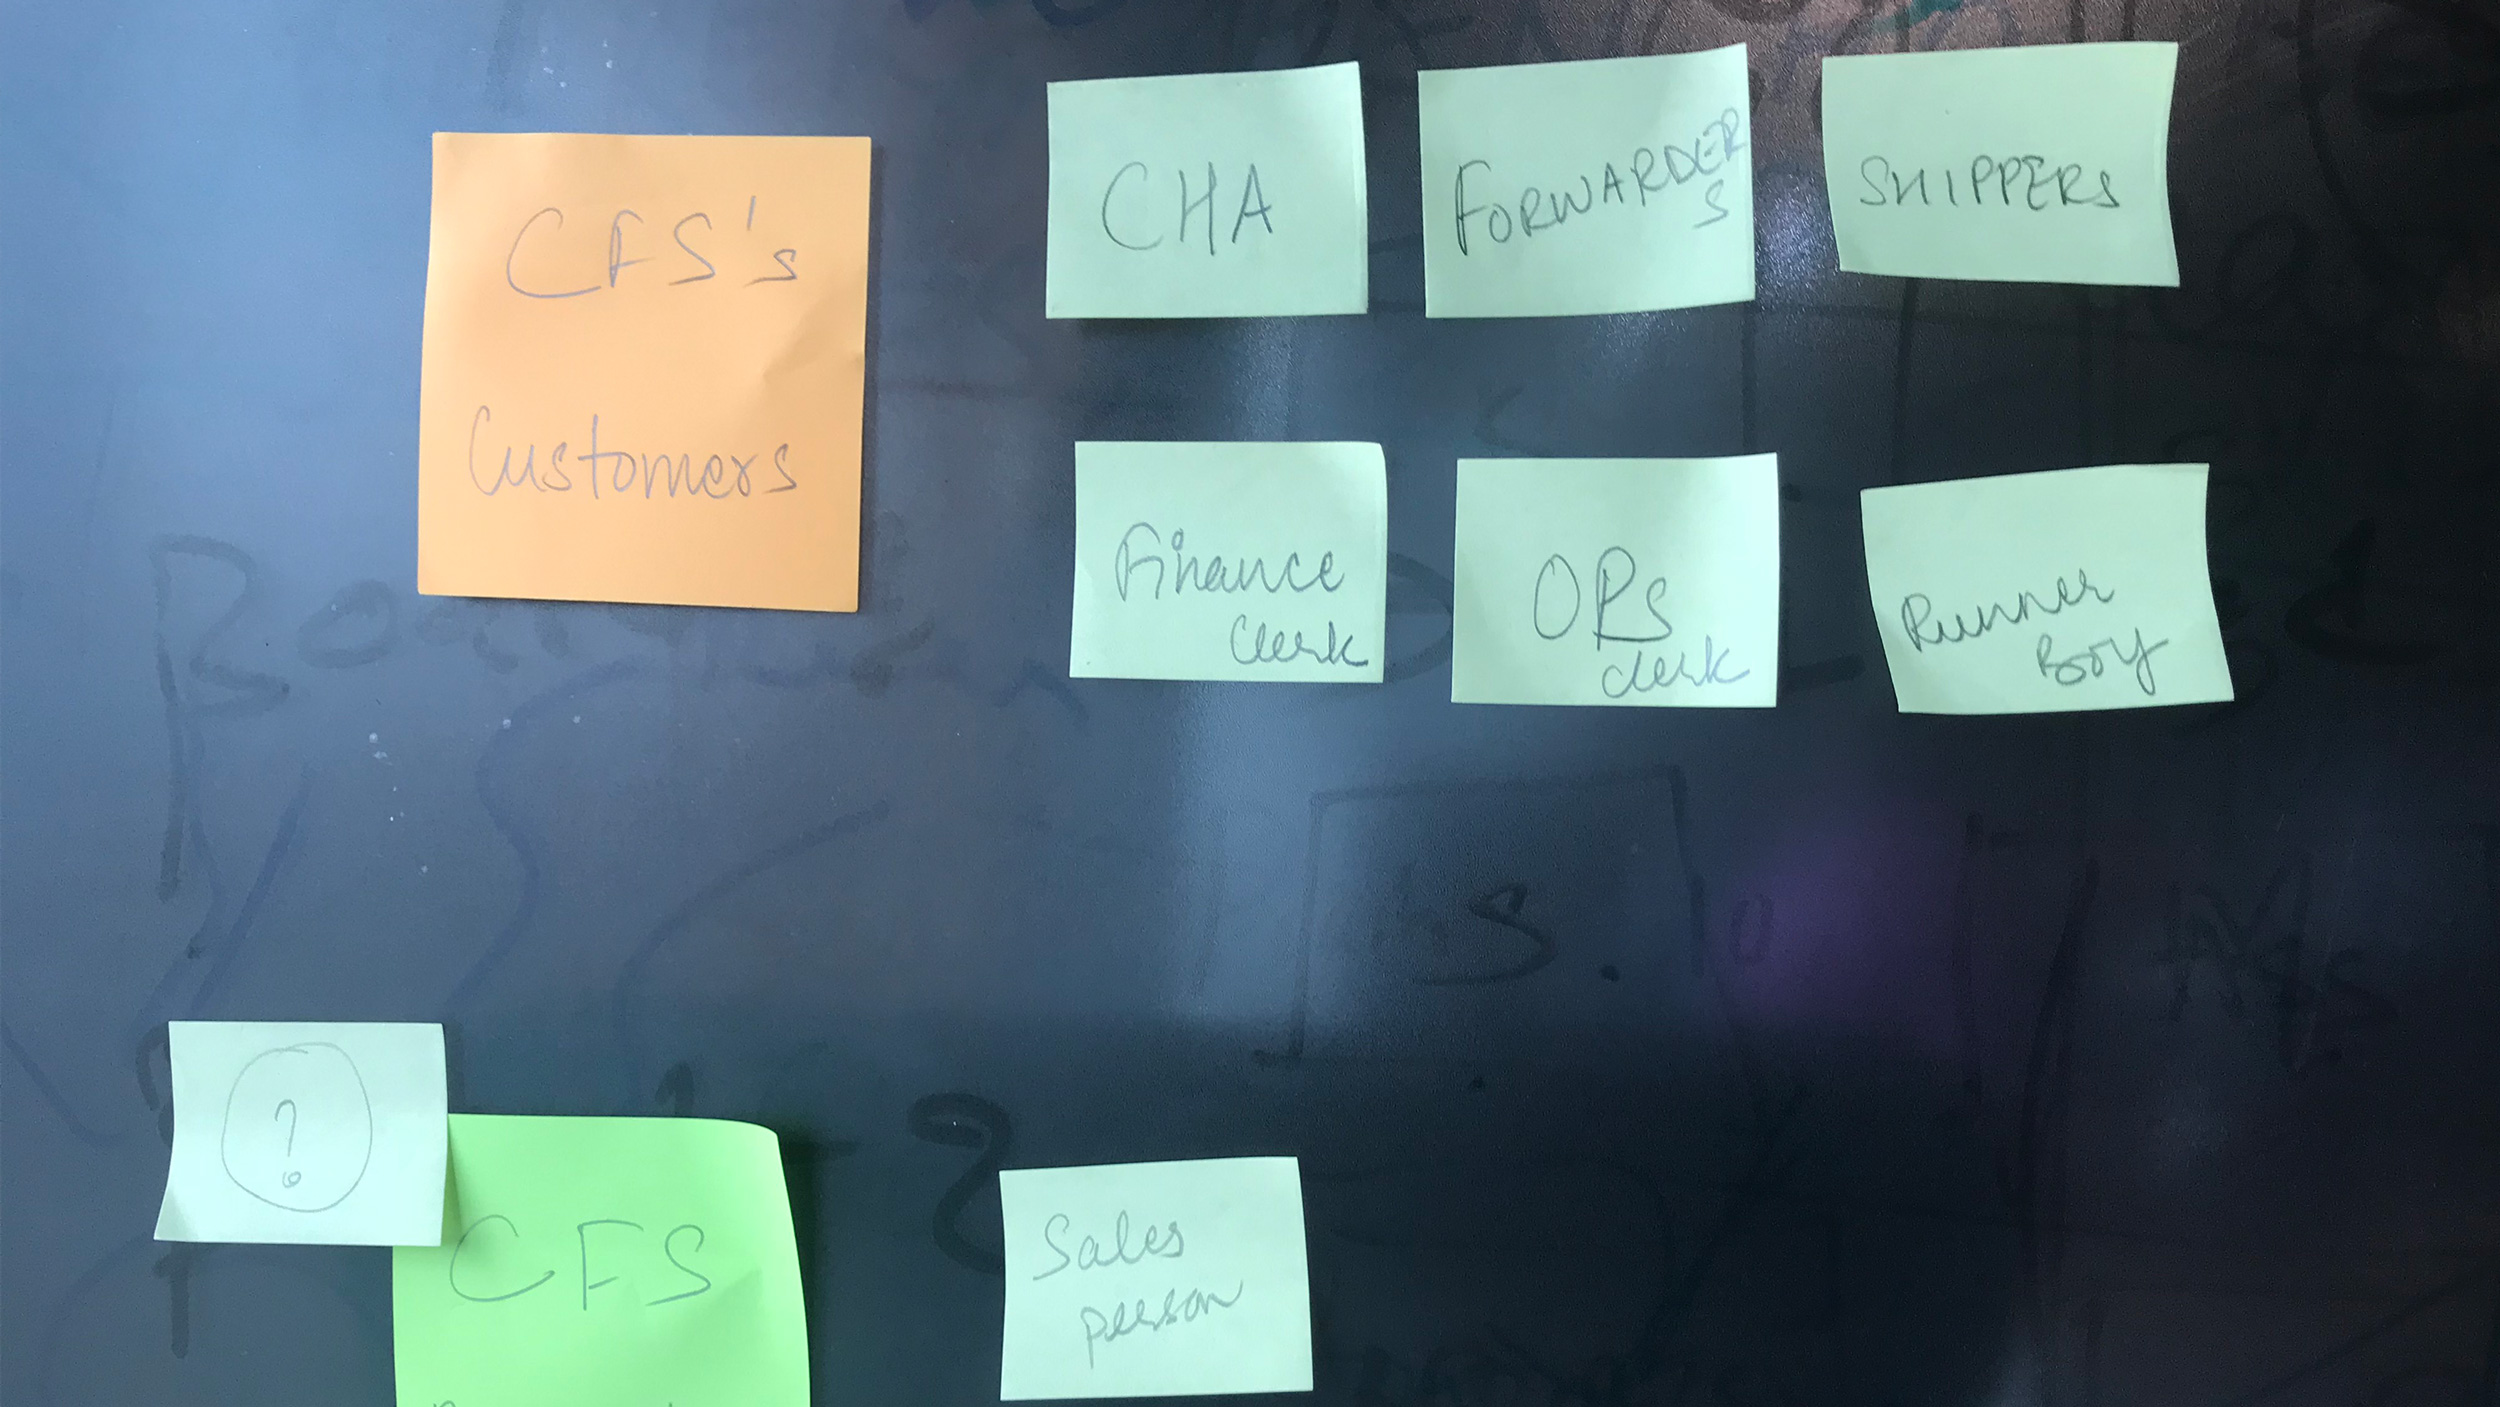 CFS's
Customers
CHA
FORWARDER
S
SHIPPERS
Finance
Clerk
OPs
clerk
Runner
Boy
?
CFS
Sales
person